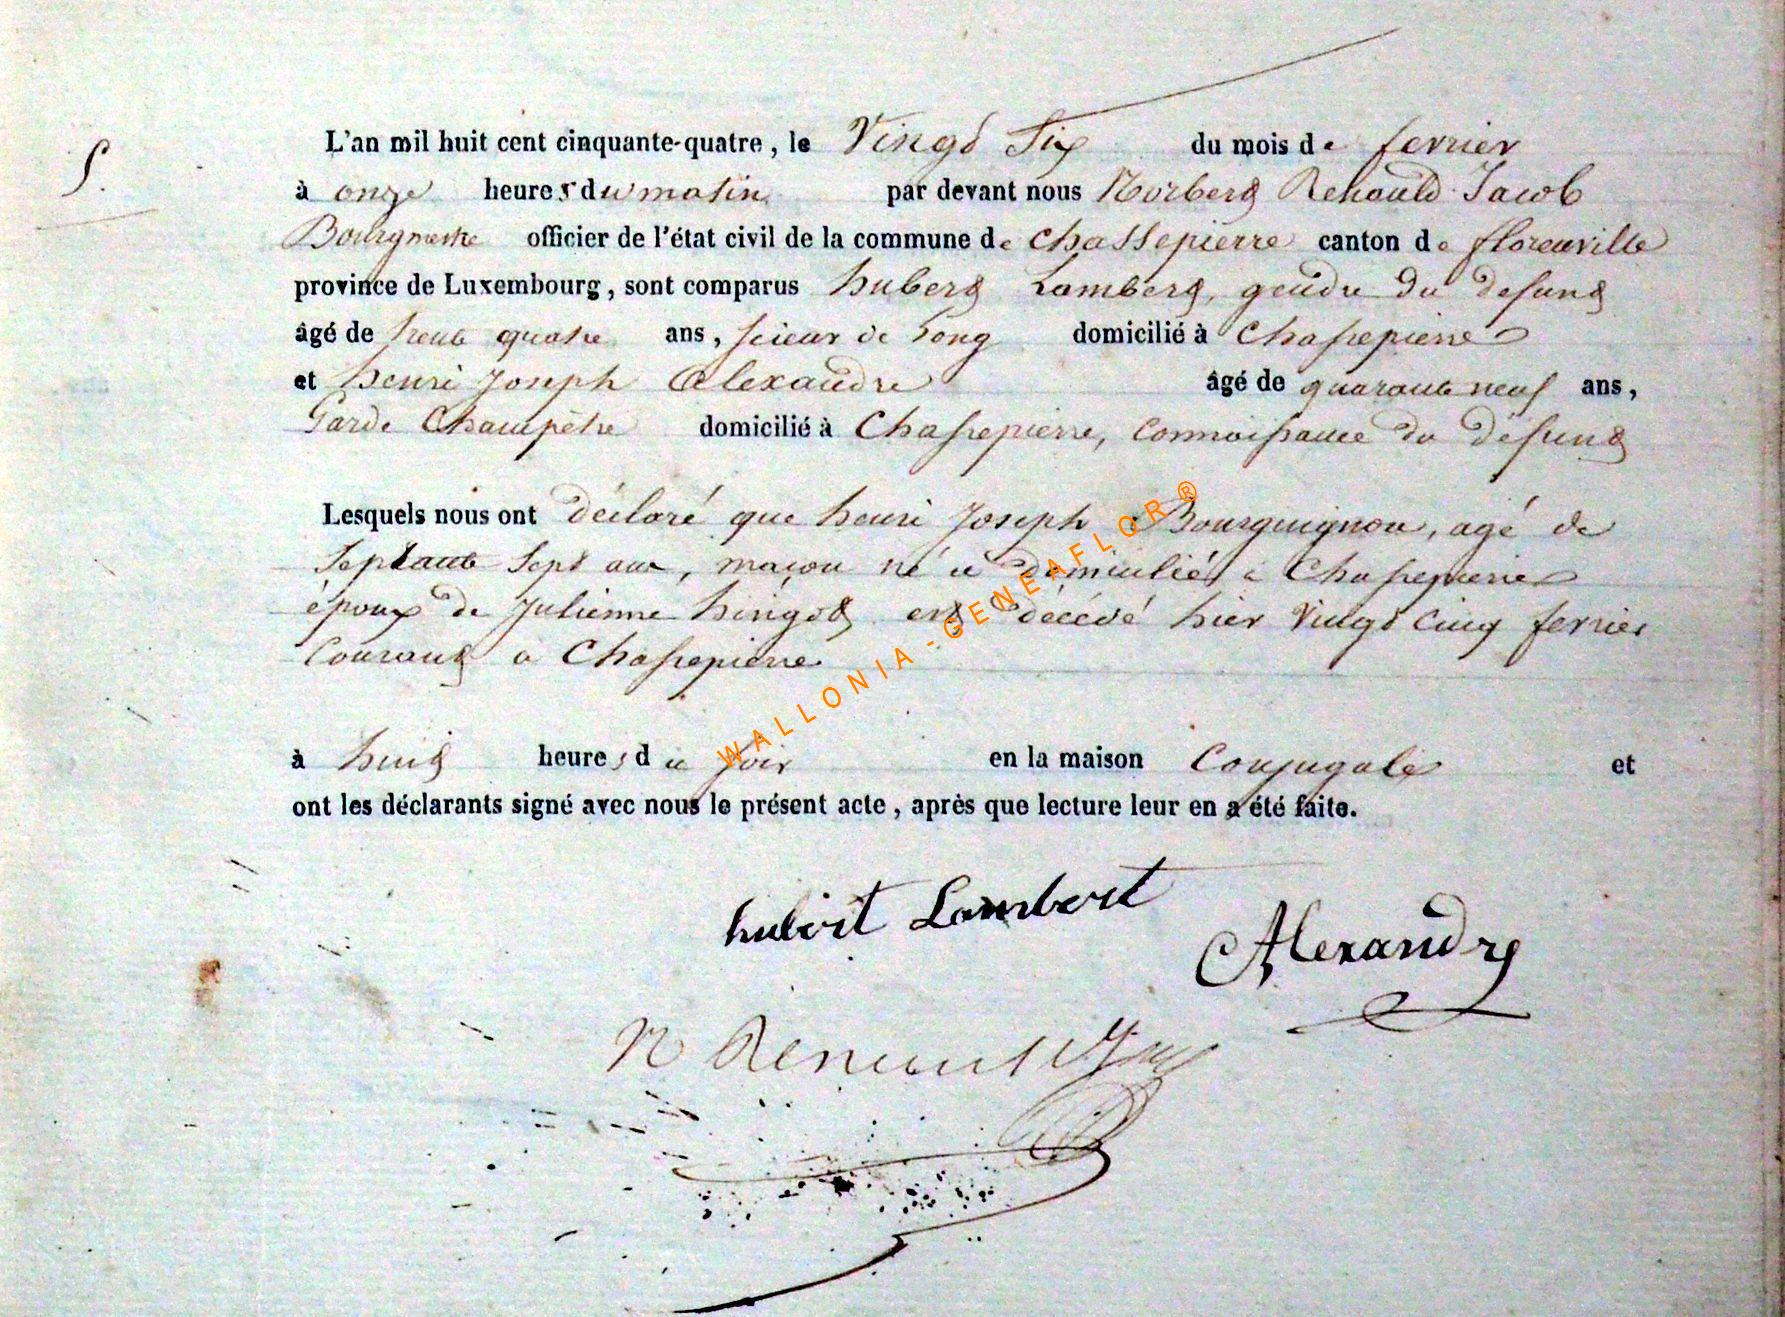 5.
L'an mil huit cent cinquante-quatre, le Vingt Six du mois de fevrier
à onze heures du matin par devant nous Norbert Renauld Jacob
Bourgmestre officier de l'état civil de la commune de Chassepierre canton de florenville
province de Luxembourg, sont comparus hubert Lambert, gendre du defunt
âgé de trente quatre ans, scieur de long domicilié à Chassepierre
et henri Joseph Alexandre âgé de quarante neuf ans,
Garde Champêtre domicilié à Chassepierre, connoissance du défunt
Lesquels nous ont déclaré que henri Joseph Bourguignon, agé de
Septante Sept ans, maçon né et domicilié à Chassepierre
époux de Julienne hingot est décédé hier vingt cinq fevrier
Courant a Chassepierre
à huit heures du soir en la maison Conjugale et
ont les déclarants signé avec nous le présent acte, après que lecture leur en a été faite.
hubert Lambert
Alexandre
N Renauld
WALLONIA-GENEAFLOR®